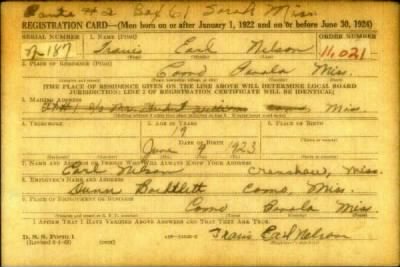 Route # 2 Box 61 Sarah Miss
REGISTRATION CARD—(Men born on or after January 1, 1922 and on or before June 30, 1924)
SERIAL NUMBER 1. NAME (Print) ORDER NUMBER
N-187 Travis Earl Nelson 11,021
2. PLACE OF RESIDENCE (Print)
Como Panola Miss.
[THE PLACE OF RESIDENCE GIVEN ON THE LINE ABOVE WILL DETERMINE LOCAL BOARD
JURISDICTION; LINE 2 OF REGISTRATION CERTIFICATE WILL BE IDENTICAL]
3. MAILING ADDRESS
Como, Miss
4. TELEPHONE 5. AGE IN YEARS 6. PLACE OF BIRTH
19
DATE OF BIRTH
June 9 1923
7. NAME AND ADDRESS OF PERSON WHO WILL ALWAYS KNOW YOUR ADDRESS
Earl Nelson Crenshaw, Miss.
8. EMPLOYER'S NAME AND ADDRESS
Dunn Como, Miss.
9. PLACE OF EMPLOYMENT OR BUSINESS
Como Panola Miss
I AFFIRM THAT I HAVE VERIFIED ABOVE ANSWERS AND THAT THEY ARE TRUE.
D. S. S. Form 1 (over)
Travis Earl Nelson